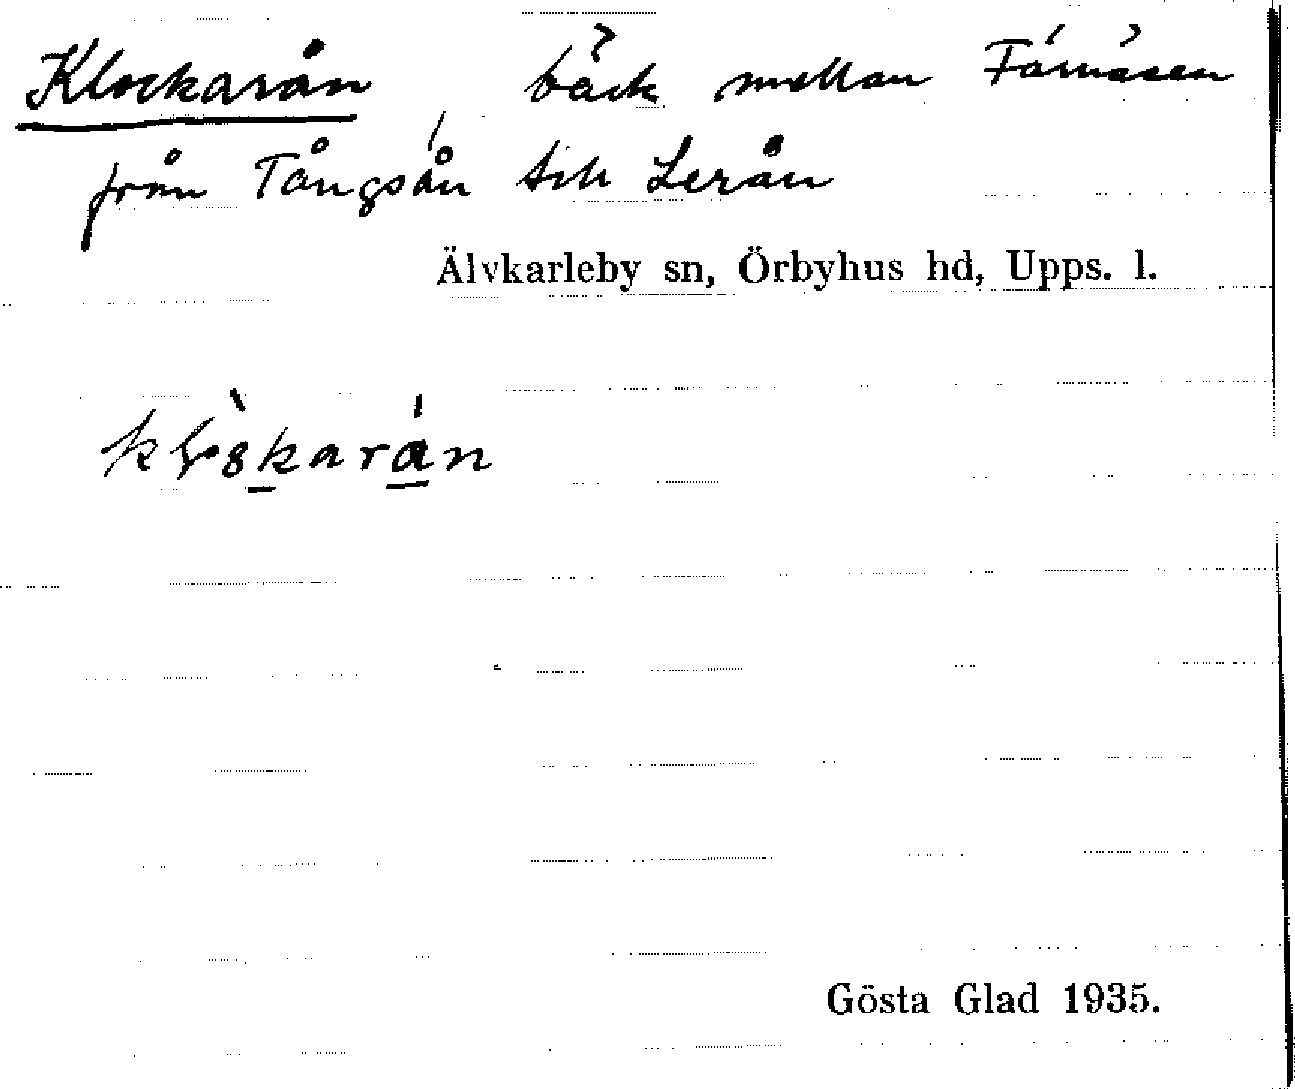 Klockarån bäck mellan Färnäsen
från Tångsån till Lerån
Älvkarleby sn, Örbyhus hd, Upps. l.
Gösta Glad 1935.